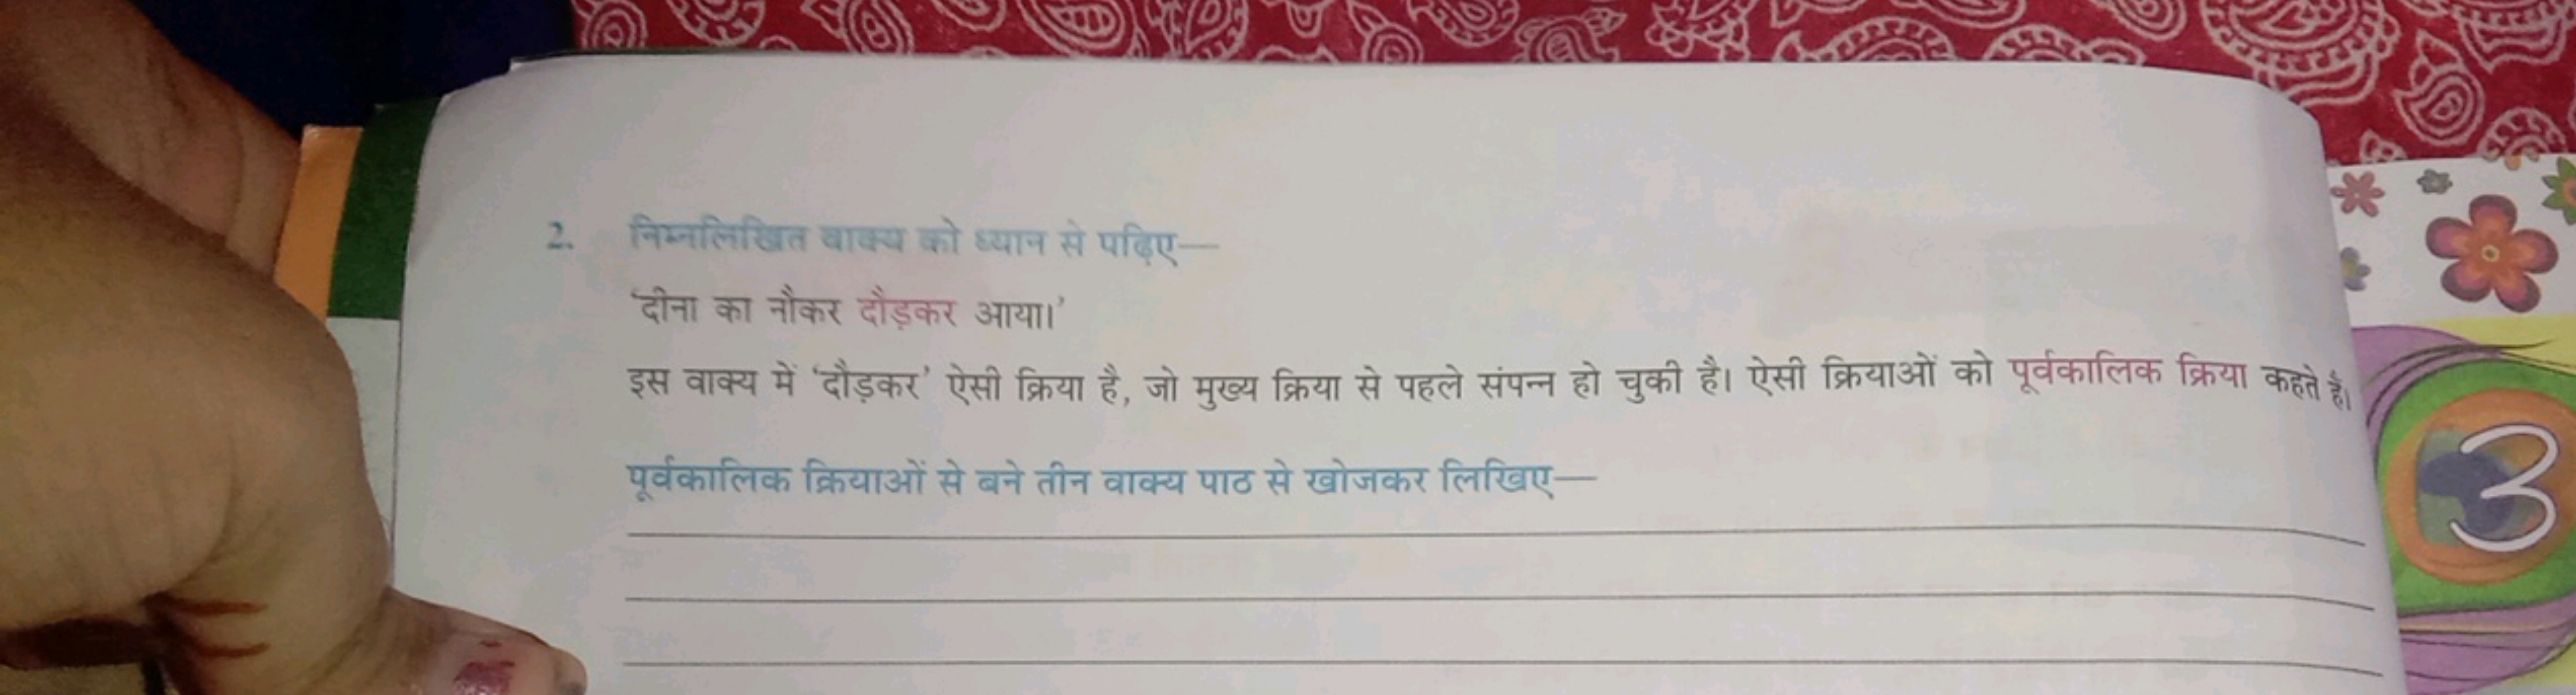 2. निम्नलिखित वाक्य को ध्यान से पढ़िए—
'दीना का नौकर दौड़कर आया।'
इस वाक्य में 'दौड़कर' ऐसी क्रिया है, जो मुख्य क्रिया से पहले संपन्न हो चुकी है। ऐसी क्रियाओं को पूर्वकालिक क्रिया कहते हैं।
पूर्वकालिक क्रियाओं से बने तीन वाक्य पाठ से खोजकर लिखिए—
3